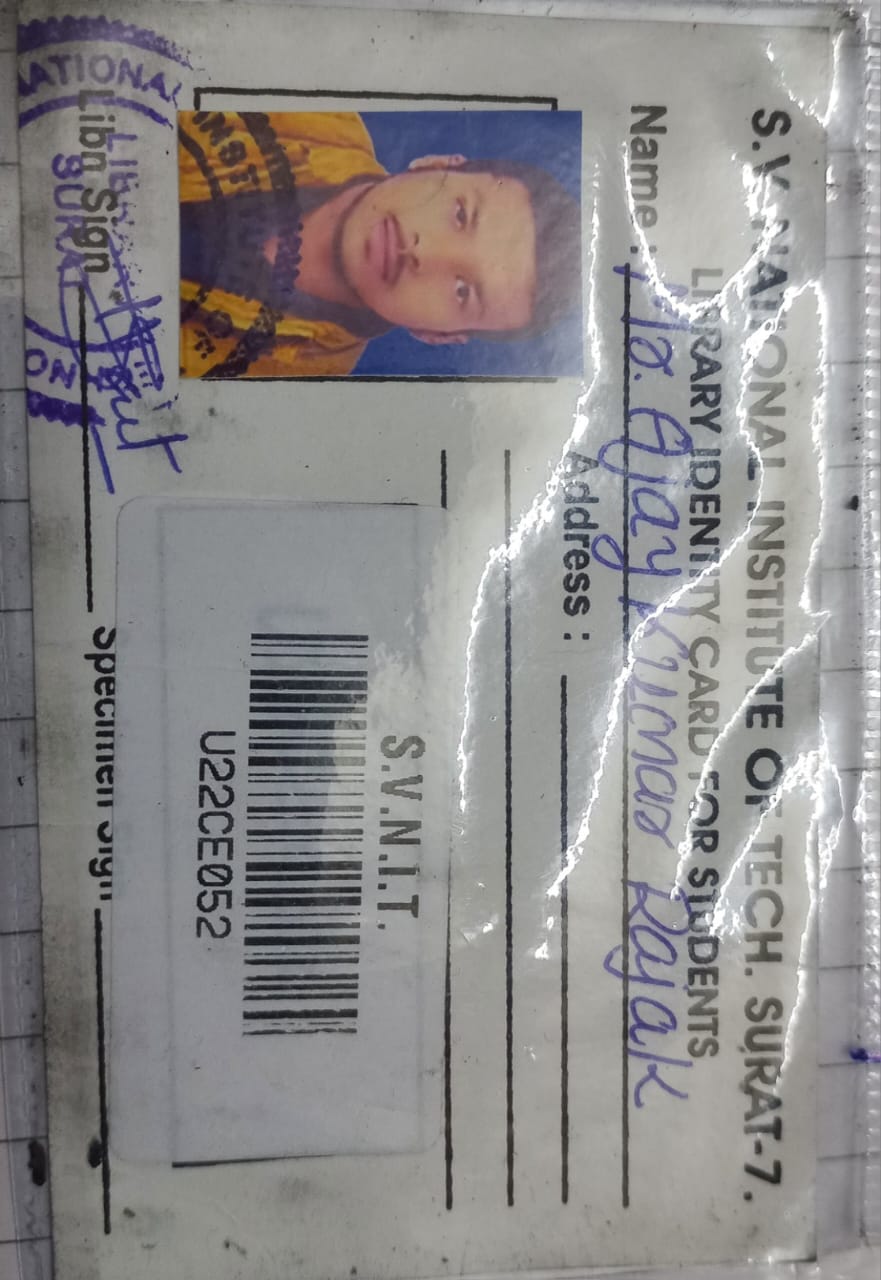 S.V. NATIONAL INSTITUTE OF TECH. SURAT-7.
LIBRARY IDENTITY CARD FOR STUDENTS
Name : Mr. Ajay Kumar Rajak
Address :
S.V.N.I.T.
U22CE052
Libn Sign
Specimen Sign
NATIONAL
SURAT